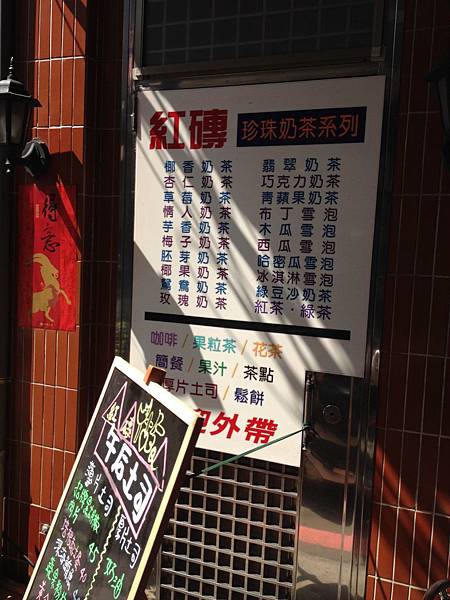 紅磚 珍珠奶茶系列
椰香奶茶 翡翠奶茶
杏仁奶茶 巧克力奶茶
草莓奶茶 青蘋果奶茶
情人奶茶 布丁雪泡
芋香奶茶 木瓜雪泡
梅子奶茶 西瓜雪泡
胚芽奶茶 哈密瓜雪泡
椰果奶茶 冰淇淋雪泡
鴛鴦奶茶 綠豆沙奶茶
玫瑰奶茶 紅茶・綠茶
咖啡/果粒茶/花茶
簡餐/果汁/茶點
厚片土司/鬆餅
外帶
得意
午后土司
薄片土司 厚片土司